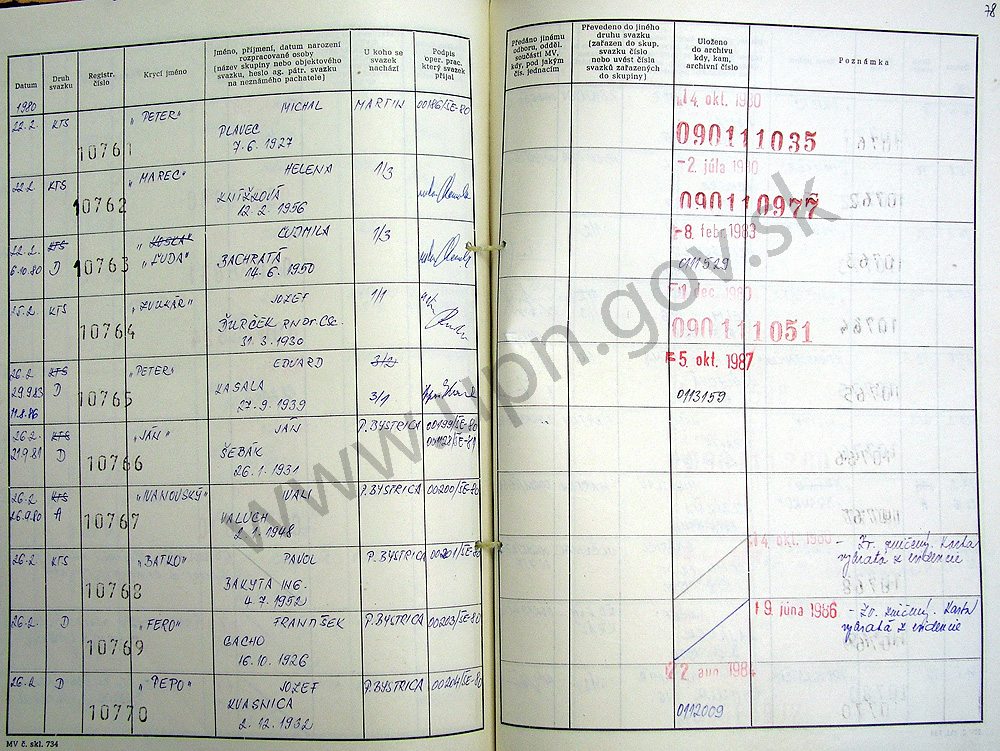 78
Datum
Druh svazku
Registr. číslo
Krycí jméno
Jméno, příjmení, datum narození
rozpracované osoby
(název skupiny nebo objektového
svazku, heslo ag. pátr. svazku
na neznámého pachatele)
U koho se
svazek
nachází
Podpis
oper. prac.
který svazek
přijal
Předáno jinému
odboru, odděl.
součásti MV,
kdy, pod jakým
čís. jednacím
Převedeno do jiného
druhu svazku
(zařazen do skup.
svazku číslo
nebo uvést číslo
svazků zařazených
do skupiny)
Uloženo
do archivu
kdy, kam,
archivní číslo
Poznámka
1980
22.2. KTS 10761 "PETER" MICHAL MARTIN 00186/ŠE-80
PLAVEC
7.6.1927
14. okt. 1980
090111035
22.2. KTS 10762 "MAREC" HELENA 1/3
KNÍŽKOVÁ
12.2.1956
-2. júla 1980
090110977
22.2. KTS 10763 ĽUDMILA 1/3
6.10.80 D "ĽUDA" ZACHRATÁ
14.6.1950
-8. febr. 1983
0111529
25.2. KTS 10764 JOZEF 1/1
ĎURČEK RNDr. CSc.
31.3.1930
dec. 1980
090111051
26.2. KTS 10765 "PETER" EDUARD 3/2
29.9.83 D KASALA 3/1
11.8.86 27.9.1939
5. okt. 1987
0113159
26.2. KTS 10766 "JÁN" JÁN P. BYSTRICA 00199/ŠE-80
21.9.81 D ŠEBÁK
26.1.1931
26.2. KTS 10767 "IVANOVSKÝ" P. BYSTRICA 00200/ŠE-80
26.9.80 A VALUCH
2.1.1948
26.2. KTS 10768 "BATKO" PAVOL P. BYSTRICA 00201/ŠE-80
ZAKYTA ING.
4.7.1952
14. okt. 1980 - Zv. zničený. Karta
vybratá z evidencie
26.2. D 10769 "FERO" FRANTIŠEK P. BYSTRICA 00203/ŠE-80
GACHO
16.10.1926
19. júna 1986 - Zv. zničený. Karta
vybratá z evidencie
26.2 D 10770 "PEPO" JOZEF P. BYSTRICA 00204/ŠE-80
KVASNICA
2.12.1932
1984
0112009
MV č. skl. 734
www.upn.gov.sk